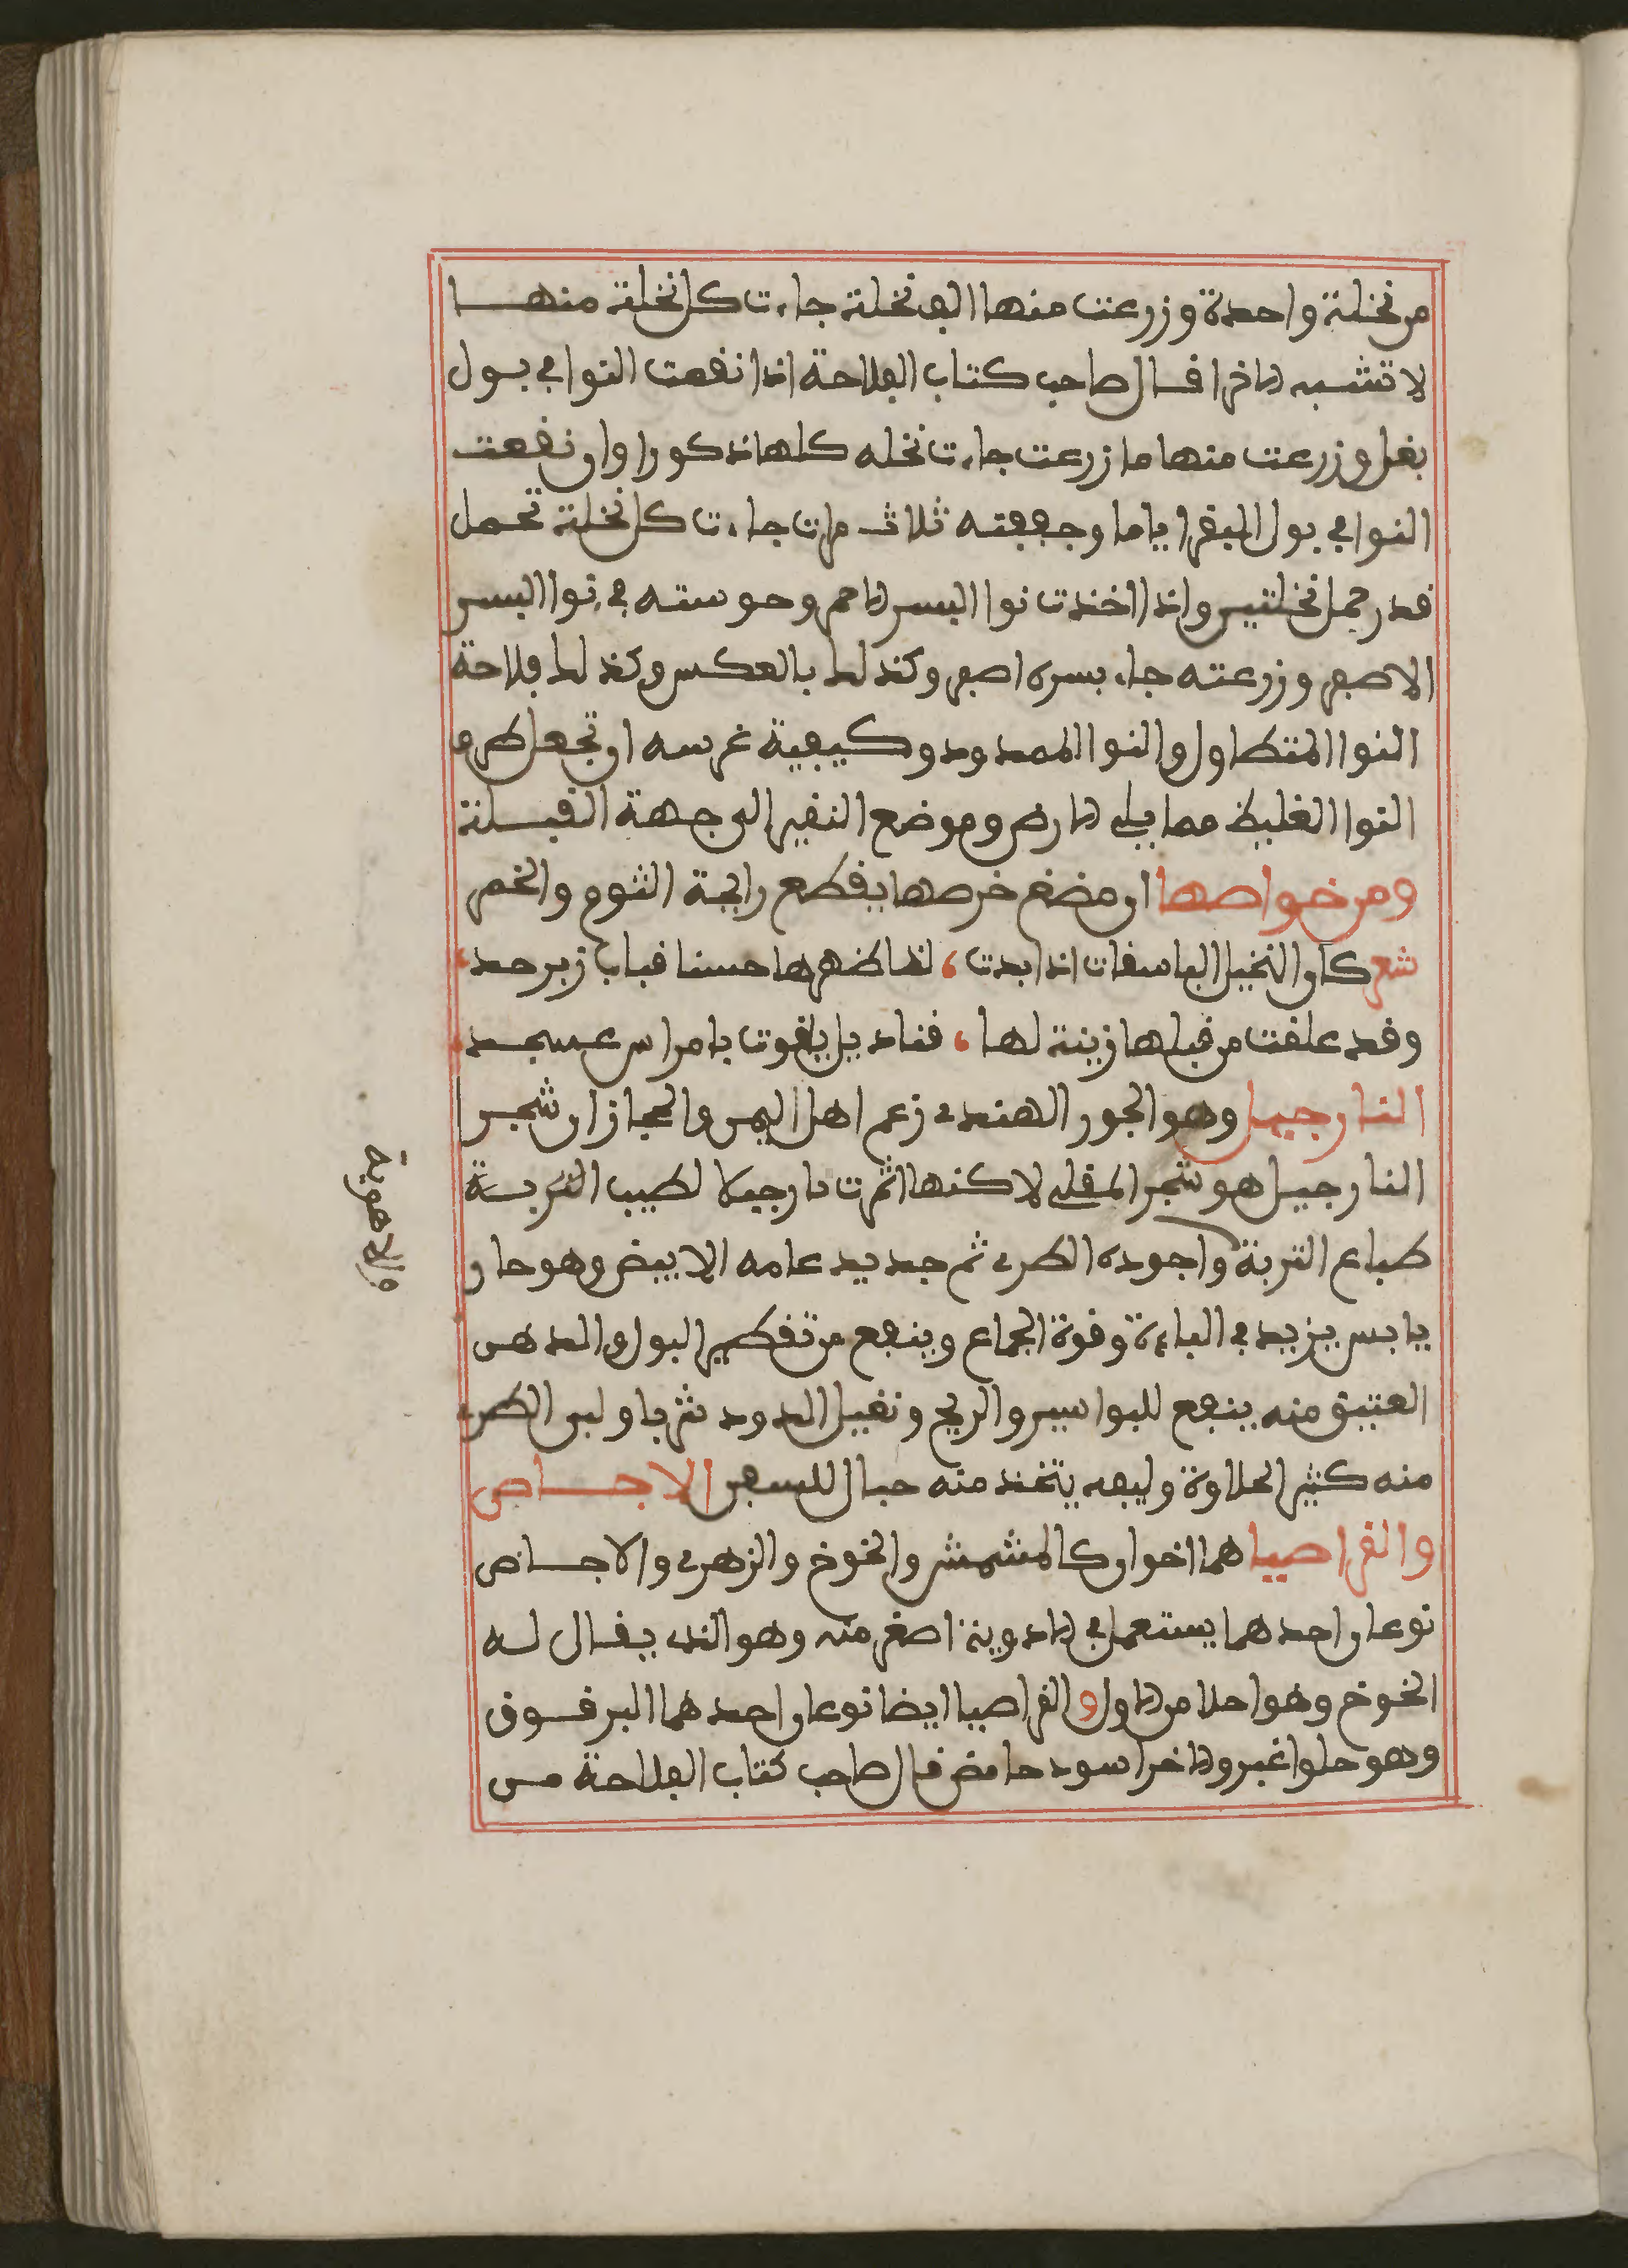 من نخلة واحدة وزرعت منها الف نخلة جاءت كل نخلة منها
لا تشبه الاخرا قال صاحب كتاب الفلاحة اذا نقعت النوا في بول
بغل وزرعت منها ما زرعت جاءت نخله كلها ذكورا وان نقعت
النوا في بول البقر اياما وجففته ثلاث مرات جاءت كل نخلة تحمل
قدر حمل نخلتين واذا اخذت نوا البسر الاحمر وحوسته في نوا البسر
الاصفر وزرعته جاء بسره اصفر وكذلك بالعكس وكذلك فلاحة
النوا المتطاول والنوا الممدود وكيفية غرسه ان تجعل طرف
النوا الغليظ مما يلي الارض وموضع النقير الى جهة القبلة
ومن خواصها ان مضغ خرصها يقطع رايحة الثوم والخمر
شعر كان النخيل الباسقات اذا بدت، لناظرها حسنا قباب زبرجد،
وقد علقت من قبلها زينة لها، قناديل ياقوت بامراس عسجد،
النارجيل وهو الجوز الهندي زعم اهل اليمن والحجاز ان شجر
النارجيل هو شجر المقل لاكنها اثمرت نارجيلا لطيب التربة
طباع التربة واجوده الطري ثم جديد عامه الابيض وهو حار
يابس يزيد في الباءة وقوة الجماع وينفع من تقطير البول والدهن
العتيق منه ينفع للبواسير والريح وتقتيل الدود شربا ولبن الطري
منه كثير الحلاوة وليفه يتخذ منه حبال للسفن الاجاص
والقراصيا هما اخوان كالمشمش والخوخ والزهري والاجاص
نوعان احدهما يستعمل في الادوية اصغر منه وهو الذي يقال له
الخوخ وهو احلا من الاول والقراصيا ايضا نوعان احدهما البرقوق
وهو حلو اغبر والاخر اسود حامض قال صاحب كتاب الفلاحة من
والاهوية